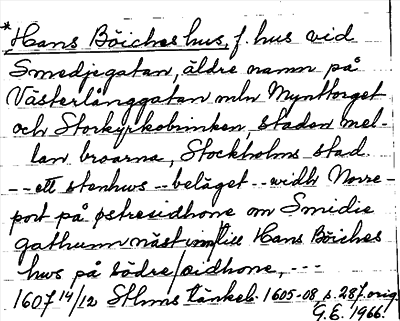 *Hans Böiches hus, f. hus vid
Smedjegatan, äldre namn på
Västerlånggatan mln Mynttorget
och Storkyrkobrinken, staden mel-
lan broarna, Stockholms stad.
-- ett stenhws -- beläget -- widh Norre-
port på østresidhone om Smidie
gathunn näst in till Hans Böiches
hws på södre sidhone, ---
1607 14/12 Sthms tänkeb. 1605-08 s. 287. orig.
G.E. 1966.